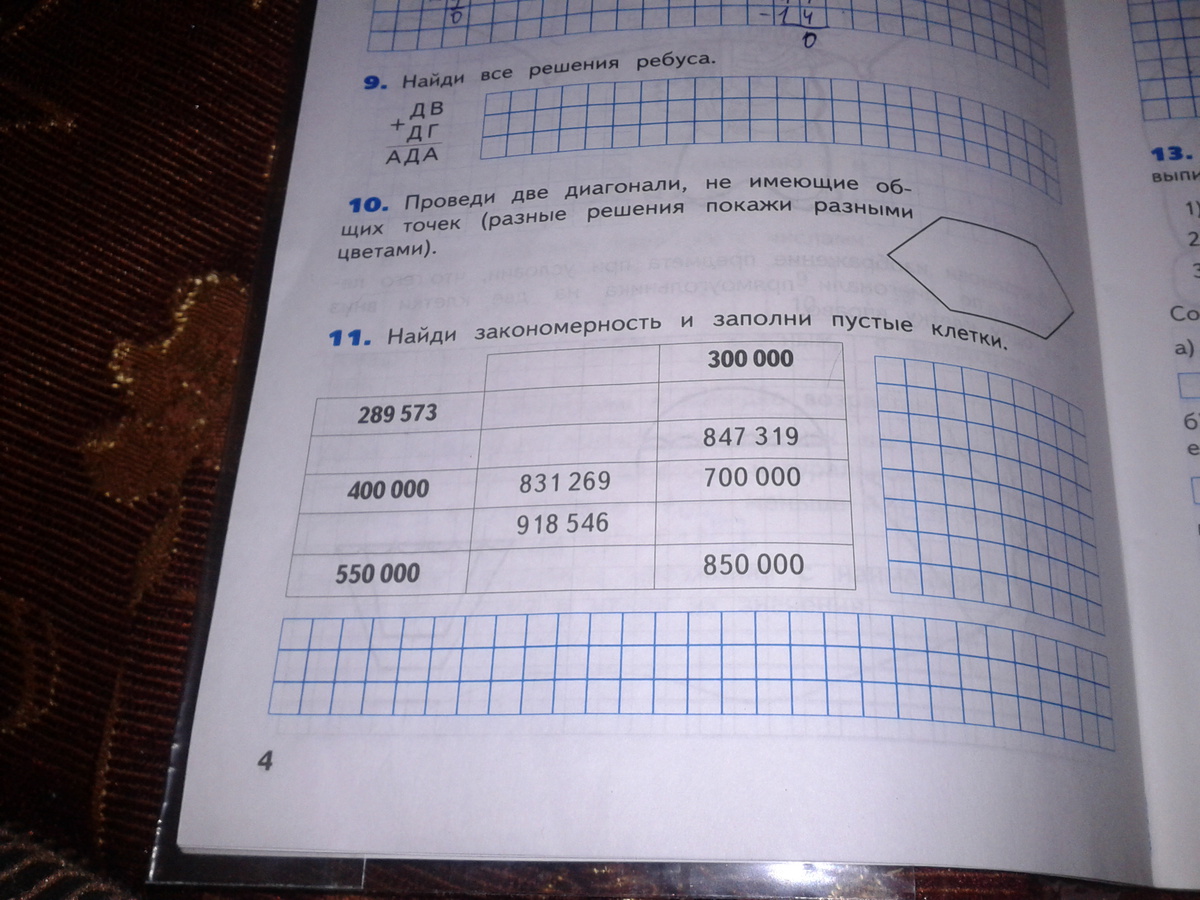 0
- 1 4
0
9. Найди все решения ребуса.
ДВ
+
ДГ
АДА
10. Проведи две диагонали, не имеющие об-
щих точек (разные решения покажи разными
цветами).
11. Найди закономерность и заполни пустые клетки.
300 000
289 573
847 319
400 000 831 269 700 000
918 546
550 000 850 000
4
13.
выпи
1)
2
3
Со
а)
б)
е